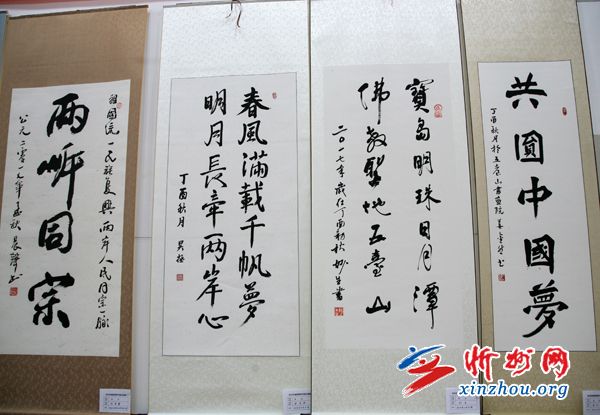 祖國統一民族復興兩岸人民同宗一脉
两岸同宗
公元二零一
春風滿載千帆夢
明月長牽兩岸心
丁酉秋月
寶島明珠日月潭
佛教聖地五臺山
二〇一七年歲在丁酉初秋妙生書
共圓中國夢
丁酉秋月於五臺山書畫院
忻州网
xinzhou.org